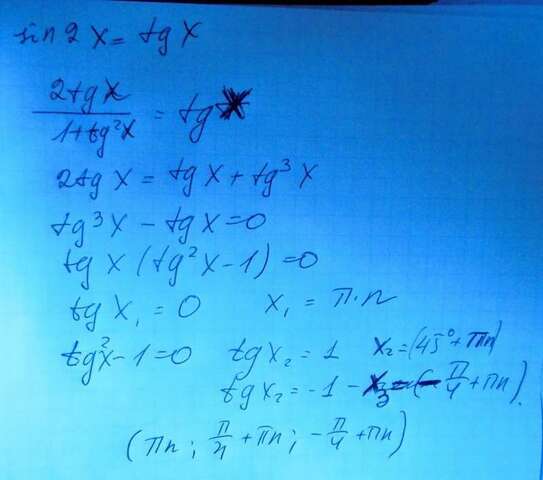 sin 2x = tg x
2tg x / 1+tg²x = tg
2tg x = tg x + tg³ x
tg³ x - tg x = 0
tg x (tg² x - 1) = 0
tg x₁ = 0 x₁ = π·n
tg²x - 1 = 0 tg x₂ = 1 x₂ = (45° + πn)
tg x₂ = -1 - x₃ = (-π/4 + πn).
(πn ; π/4 + πn ; -π/4 + πn)